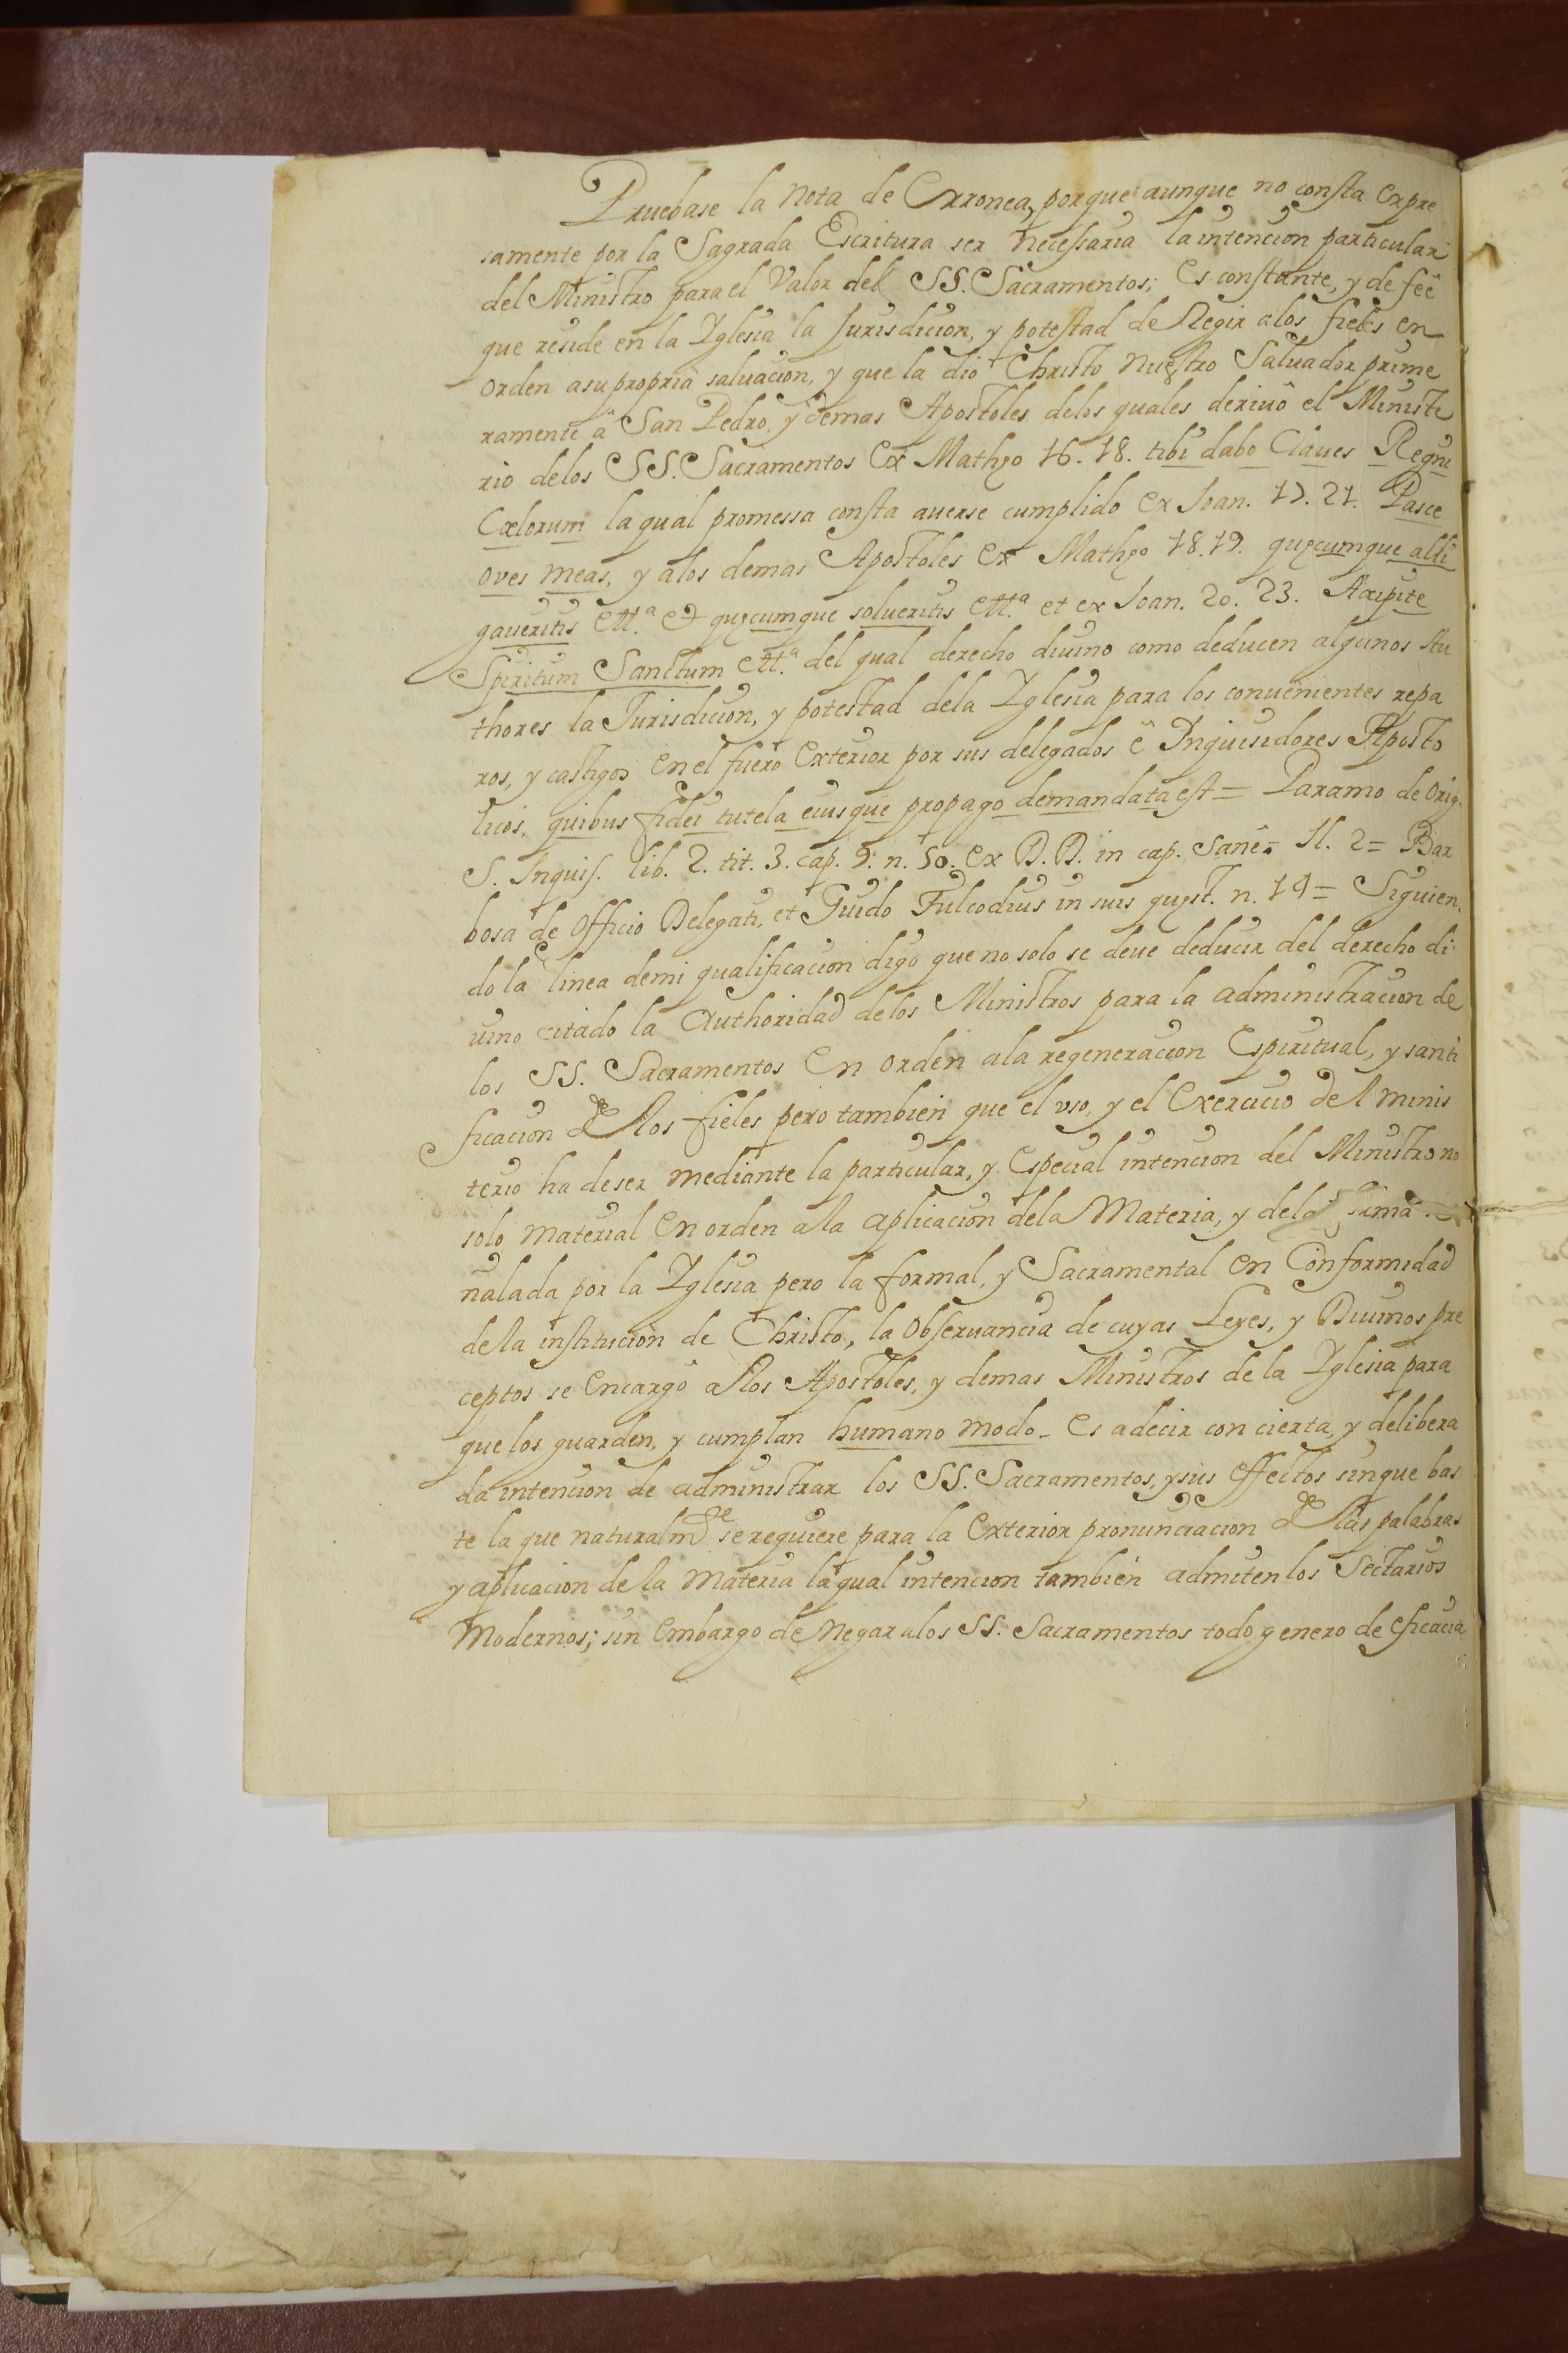 Pruebase la nota de Erronea, porque aunque no consta expre
samente por la Sagrada Escritura ser necessaria la intencion particular
del Ministro para el Valor del SS. Sacramentos; es constante, y de feê
que reside en la Yglesia la Jurisdicion, y potestad de Regir alos fieles en
orden asu propria saluacion, y que la dio Christo nuestro Saluador prime
ramente â San Pedro, y demas Apostoles delos quales deriuô el Ministe
rio delos SS. Sacramentos ex Mathęo 16. 18. tibi dabo Claues Regni
Cœlorum la qual promessa consta auerse cumplido ex Joan. 17. 21. Pasce
oves meas, y alos demas Apostoles ex Mathęo 18. 19. quęcumque alli
gaueritis ett.ª et quęcumque solueritis ett.ª et ex Joan. 20. 23. Accipite
Spiritum Sanctum ett.ª del qual derecho diuino como deducen algunos Au
thores la Jurisdicion, y potestad dela Yglesia para los convenientes repa
ros, y castigos en el fuero exterior por sus delegados ê Inquisidores Aposto
licos, quibus fidei tutela eiusque propago demandata est = Paramo de Orig.
S. Inquis. lib. 2. tit. 3. cap. 9. n. 50. ex D.D. in cap. Sanê = Il. 2 = Bar
bosa de Officio Delegati, et Guido Fulcodius in suis quęst. n. 19 = Siguien
do la linea demi qualificacion digo que no solo se deue deducir del derecho di
uino citado la Authoridad delos Ministros para la administracion de
los SS. Sacramentos en orden ala regeneracion Espiritual, y santi
ficacion de los fieles pero tambien que el vso, y el exercicio del minis
terio ha deser mediante la particular, y especial intencion del Ministro no
solo material en orden ala aplicacion dela Materia, y dela forma
ñalada por la Yglesia pero la formal, y Sacramental en Conformidad
dela institucion de Christo, la obseruancia de cuyas Leyes, y Diuinos pre
ceptos se encargô a los Apostoles, y demas Ministros de la Yglesia para
que los guarden, y cumplan humano modo. es adecir con cierta, y delibera
da intencion de administrar los SS. Sacramentos, y sus effectos sin que bas
te la que naturalmᵗᵉ se requiere para la exterior pronunciacion de las palabras
y aplicacion de la Materia la qual intencion tambien admiten los Sectarios
Modernos; sin embargo de negar alos SS. Sacramentos todo genero de eficacia